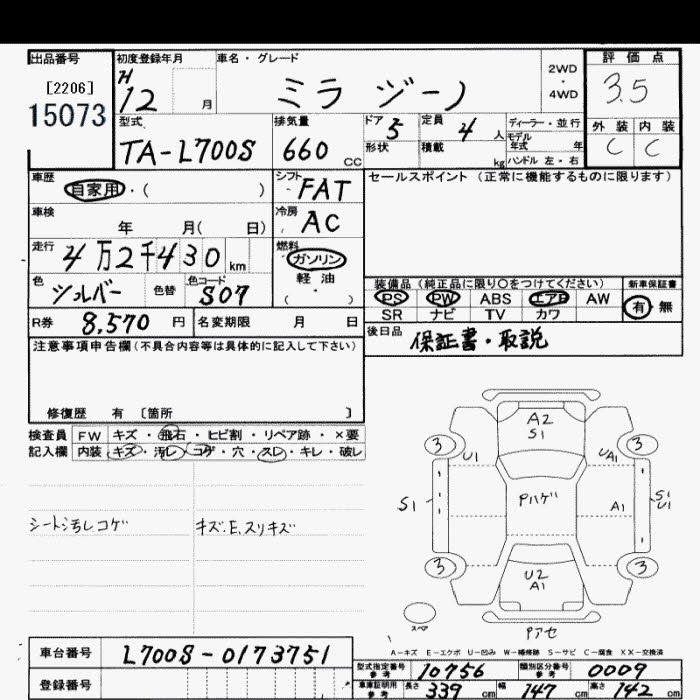 出品番号 初度登録年月 車名・グレード 評価点
[2206] H 12 月 ミラ ジーノ 2WD・4WD 3.5
15073 外装 内装
型式 排気量 ドア 5 定員 4 人 ディーラー・並行 C C
TA-L700S 660 CC 形状 積載 kg モデル年式 年
ハンドル 左・右
車歴 自家用・( ) シフト FAT セールスポイント(正常に機能するものに限ります)
車検 年 月( 日) 冷房 AC
走行 4万2千430 km 燃料 ガソリン
軽油
( )
色 シルバー 色替 色コード S07 装備品(純正品に限り○をつけてください) 新車保証書
PS PW ABS エアB AW 有・無
SR ナビ TV カワ
R券 8,570 円 名変期限 月 日 後日品 保証書・取説
注意事項申告欄(不具合内容等は具体的に記入して下さい)
修復歴 有 〔箇所 〕
検査員 FW キズ・飛石・ヒビ割・リペア跡・×要
記入欄 内装 キズ・汚レ・コゲ・穴・スレ・キレ・破レ
シート汚レコゲ キズ.E.スリキズ
A2
S1
3 3
U1 UA1
S1 Pハゲ A1 S1
U1
3 3
U2
A1
スペア
Pアセ
A－キズ E－エクボ U－凹み W－補修跡 S－サビ C－腐食 XX－交換済
車台番号 L700S-0173751
登録番号
型式指定番号 参考 10756 類別区分番号 参考 0009
車庫証明用 参考 長さ 339 cm 幅 147 cm 高さ 142 cm